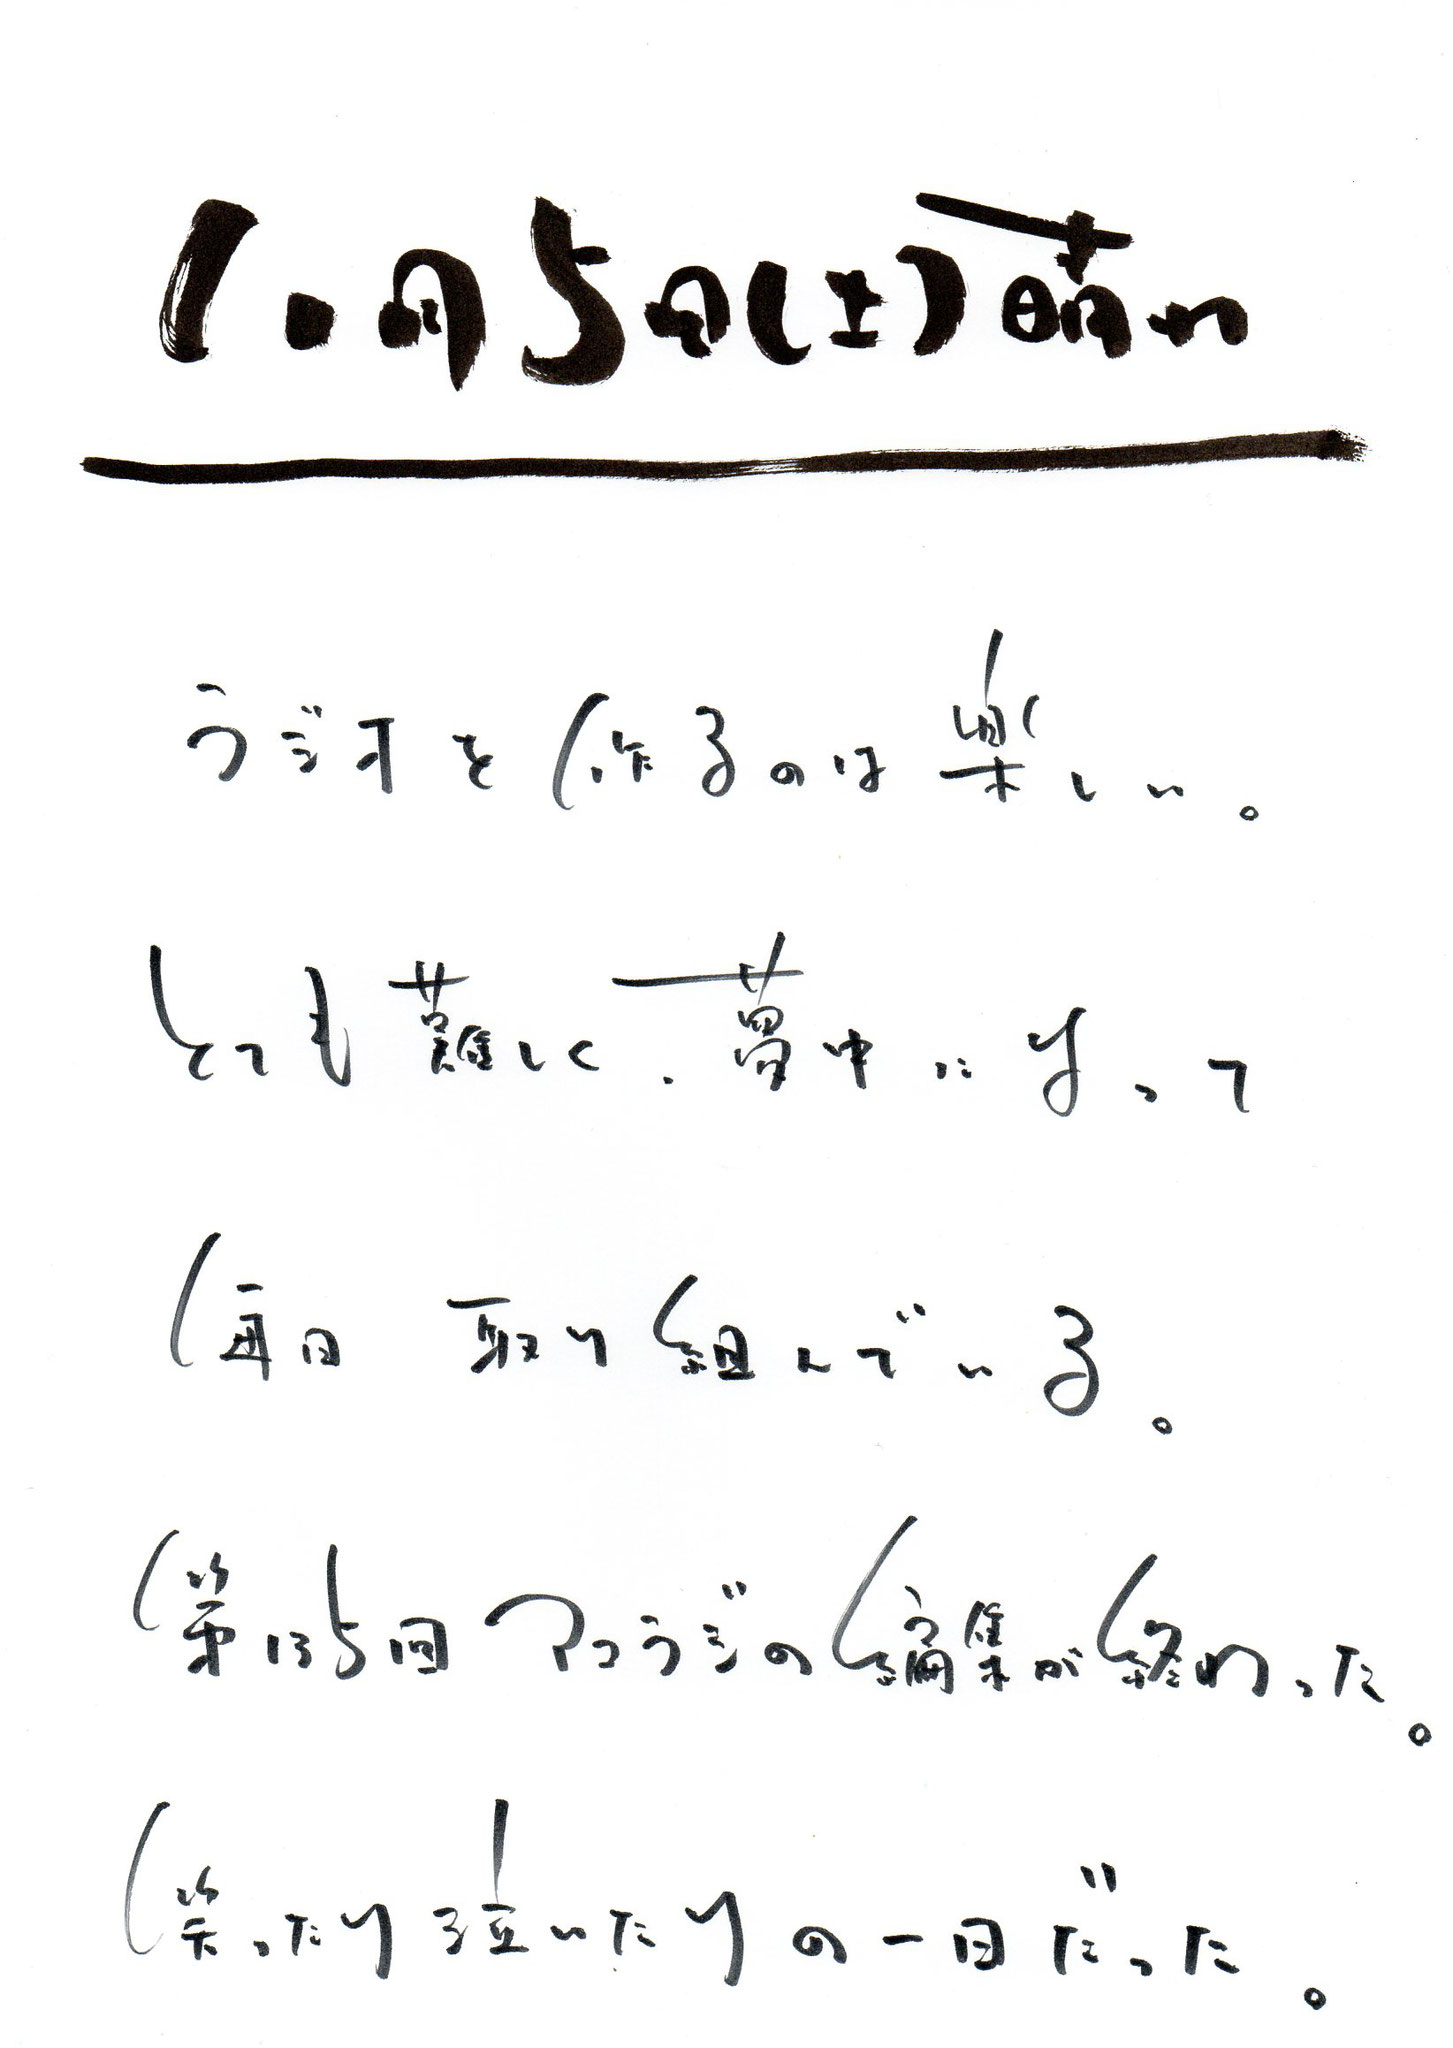 10月5日(土)晴れ
ラジオを作るのは楽しい。
とても難しく、夢中になって
毎日 取り組んでいる。
第135回アコラジの編集が終わった。
笑ったり泣いたりの一日だった。